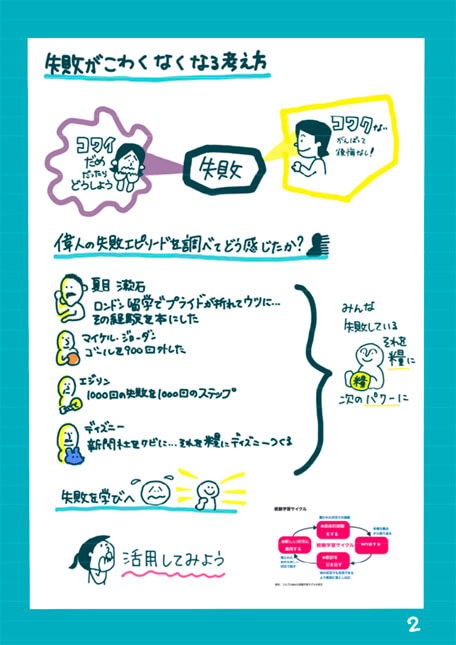 失敗がこわくなくなる考え方
コワイ
だめ
だったり
どうしよう
失敗
コワクない
がんばって
後悔なし!
偉人の失敗エピソードを調べてどう感じたか?
夏目 漱石
ロンドン留学でプライドが折れてウツに…
その経験を本にした
マイケル・ジョーダン
ゴールを900回外した
エジソン
1000回の失敗を1000回のステップ
ディズニー
新聞社をクビに…それを糧にディズニーつくる
みんな
失敗している
それを
糧に
糧
次のパワーに
失敗を学びへ
活用してみよう
経験学習サイクル
経験学習サイクル
をする
適用する
教訓を
引き出す
2